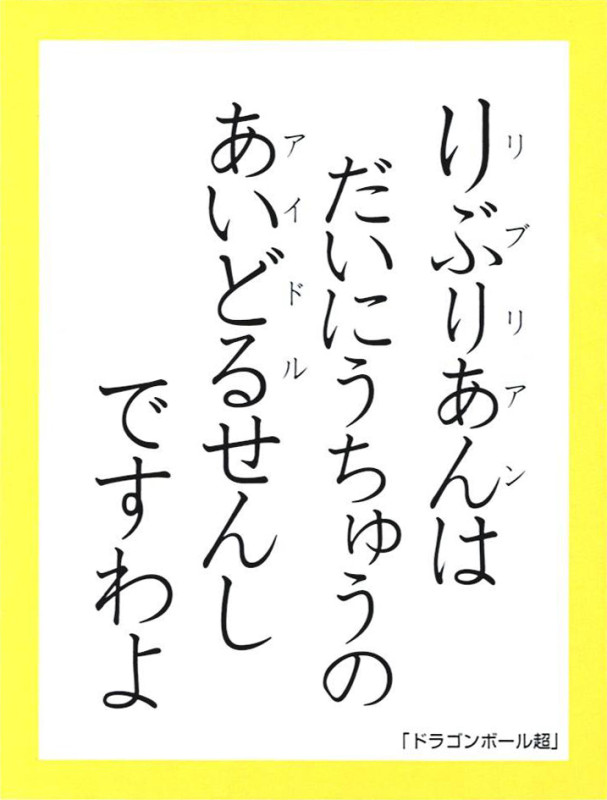 りぶりあんは
リブリアン
だいにうちゅうの
あいどるせんし
アイドル
ですわよ
「ドラゴンボール超」